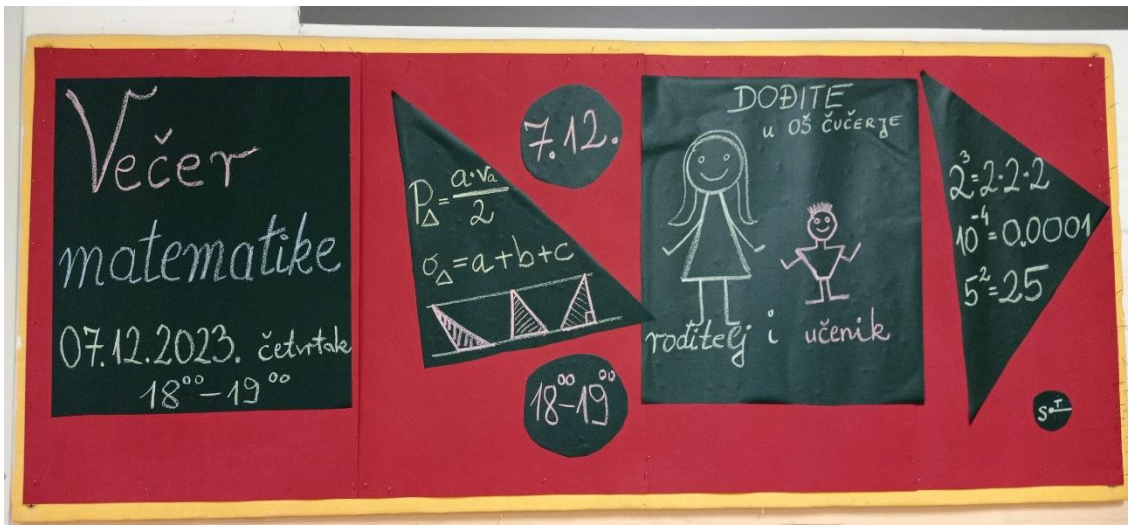 Večer
matematike
07.12.2023. četvrtak
18⁰⁰-19⁰⁰
P△=a·vₐ/2
σ△=a+b+c
7.12.
18⁰⁰-19⁰⁰
DOĐITE
u OŠ ČUČERJE
roditelj i učenik
2³=2·2·2
10⁻⁴=0.0001
5²=25